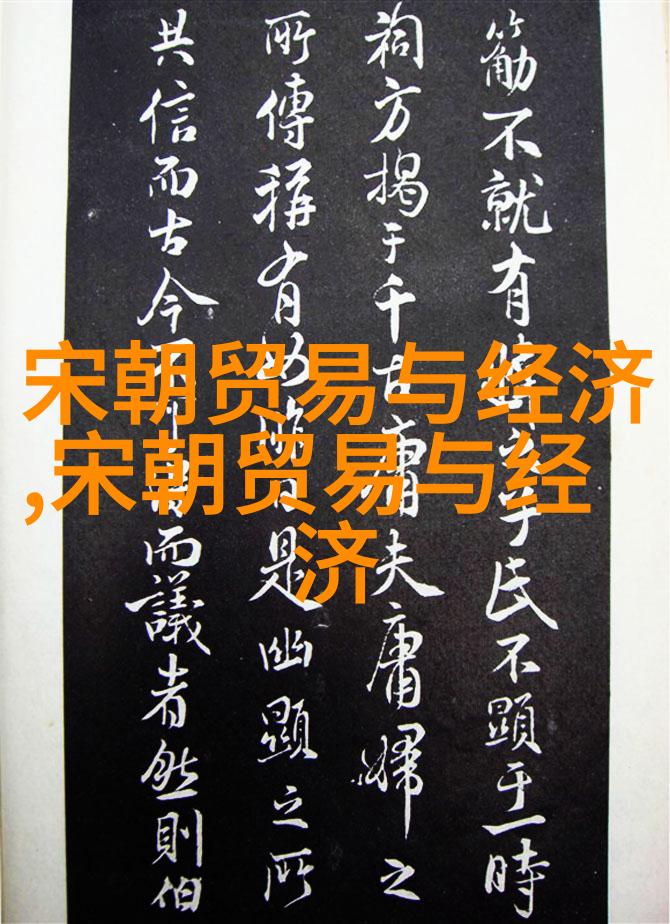 不就有于氏不顯于一時
祠方揭于千古庸夫庸婦之
所傳稱有如昨日是幽顯之所
共信而古今而議者然則伯
宋朝贸易与经济
,宋朝贸易与经
济